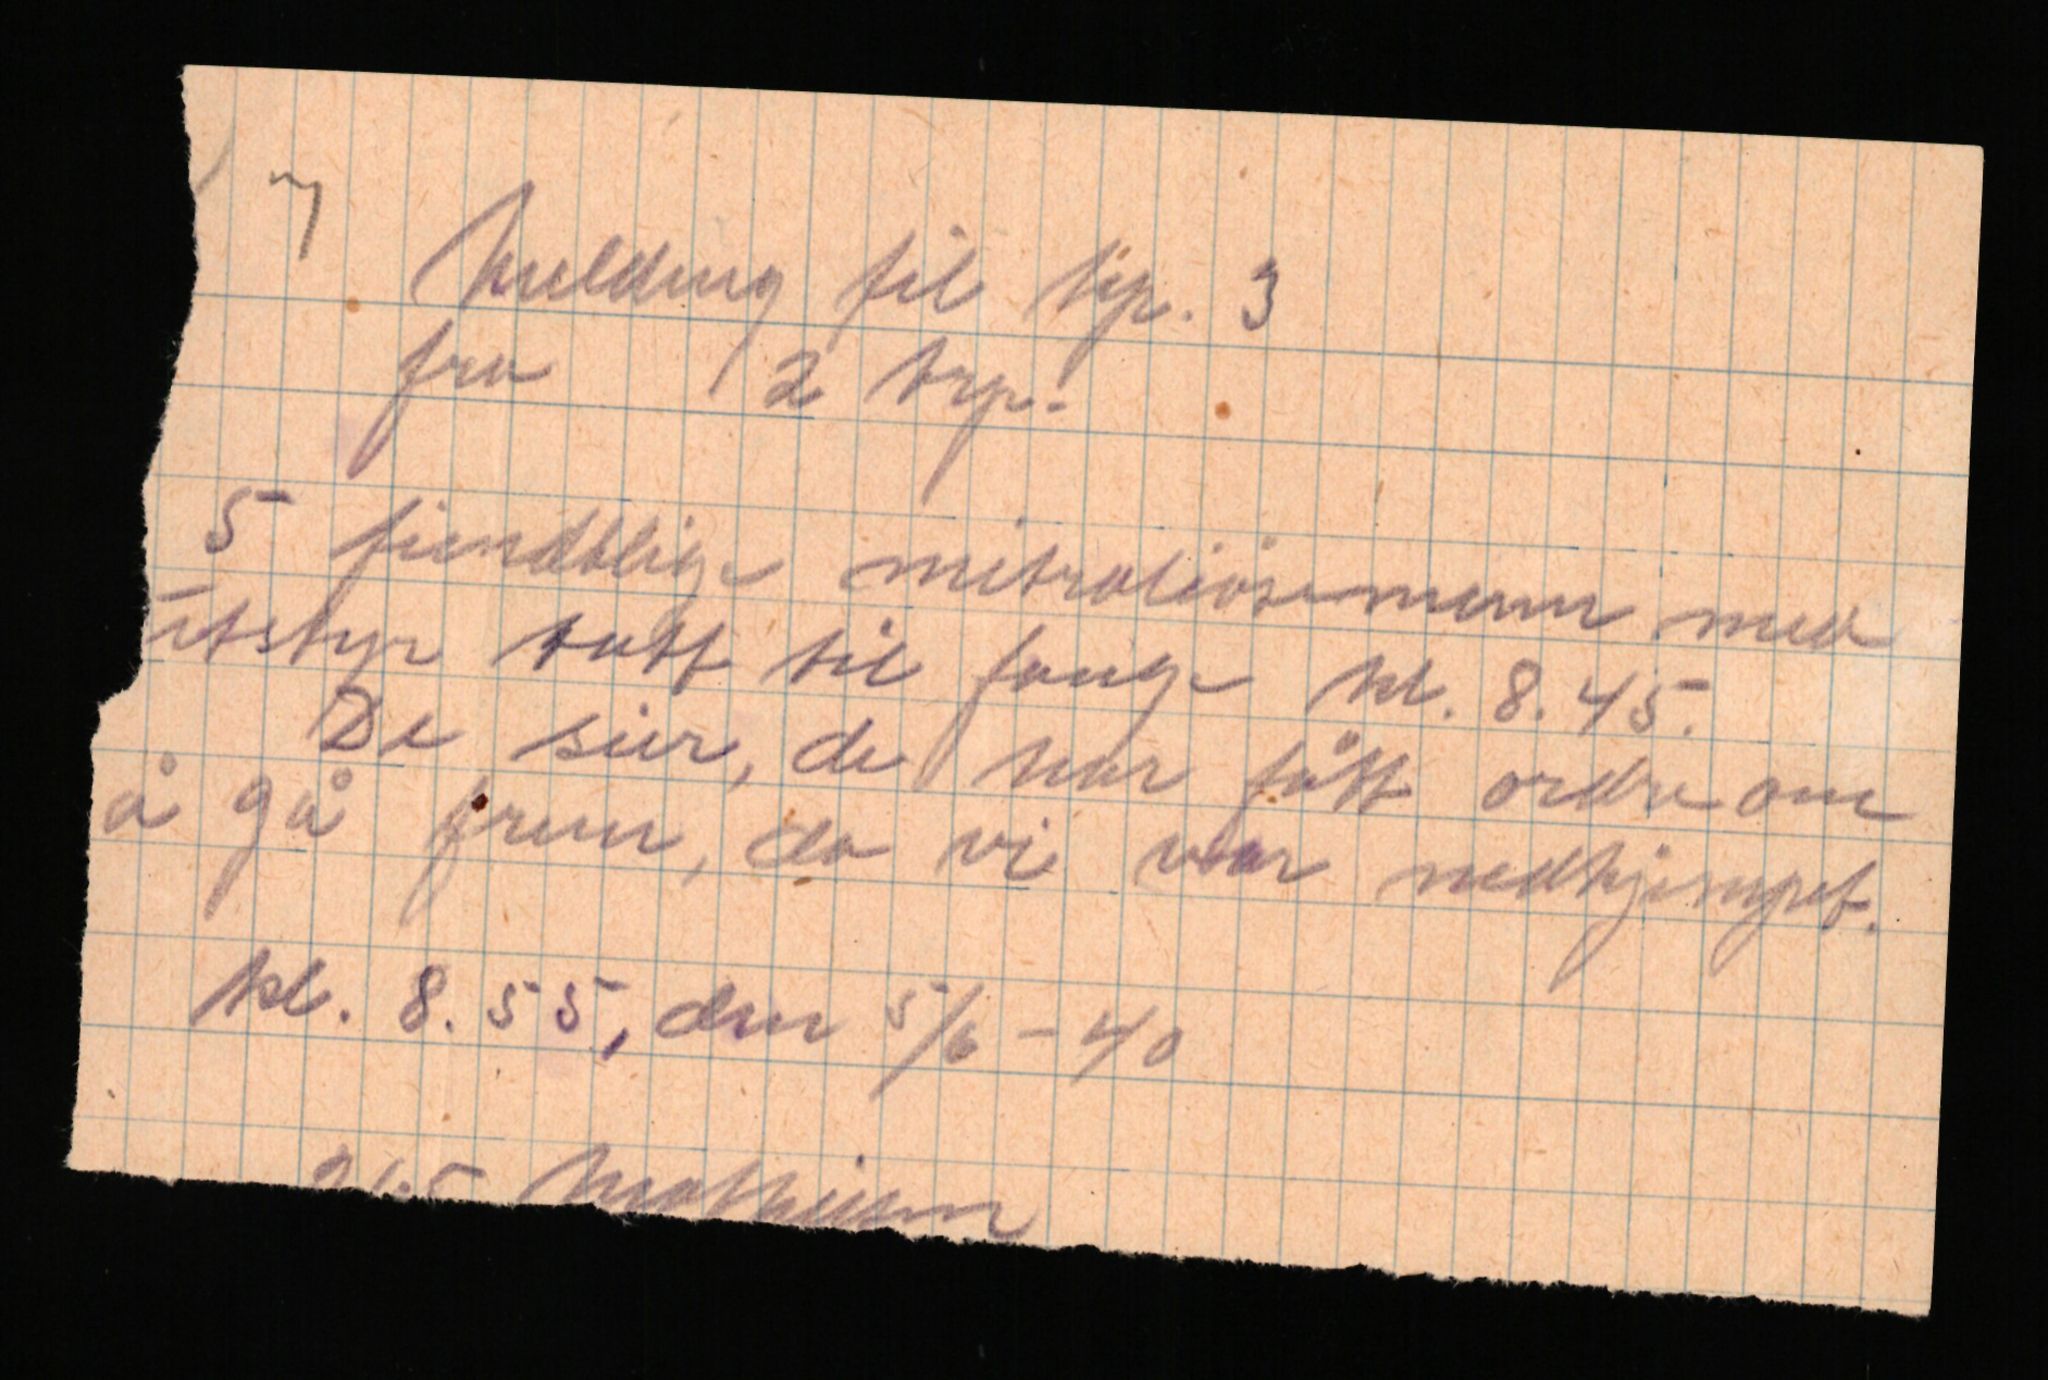 7
Melding til kp. 3
fra 2 trp.
5 fiendtlige mitraliøsemenn med
utstyr tatt til fange kl. 8.45.
De sier, de har fått ordre om
å gå frem, da vi var nedkjempet.
kl. 8.55, den 5/6 - 40
Mathisen